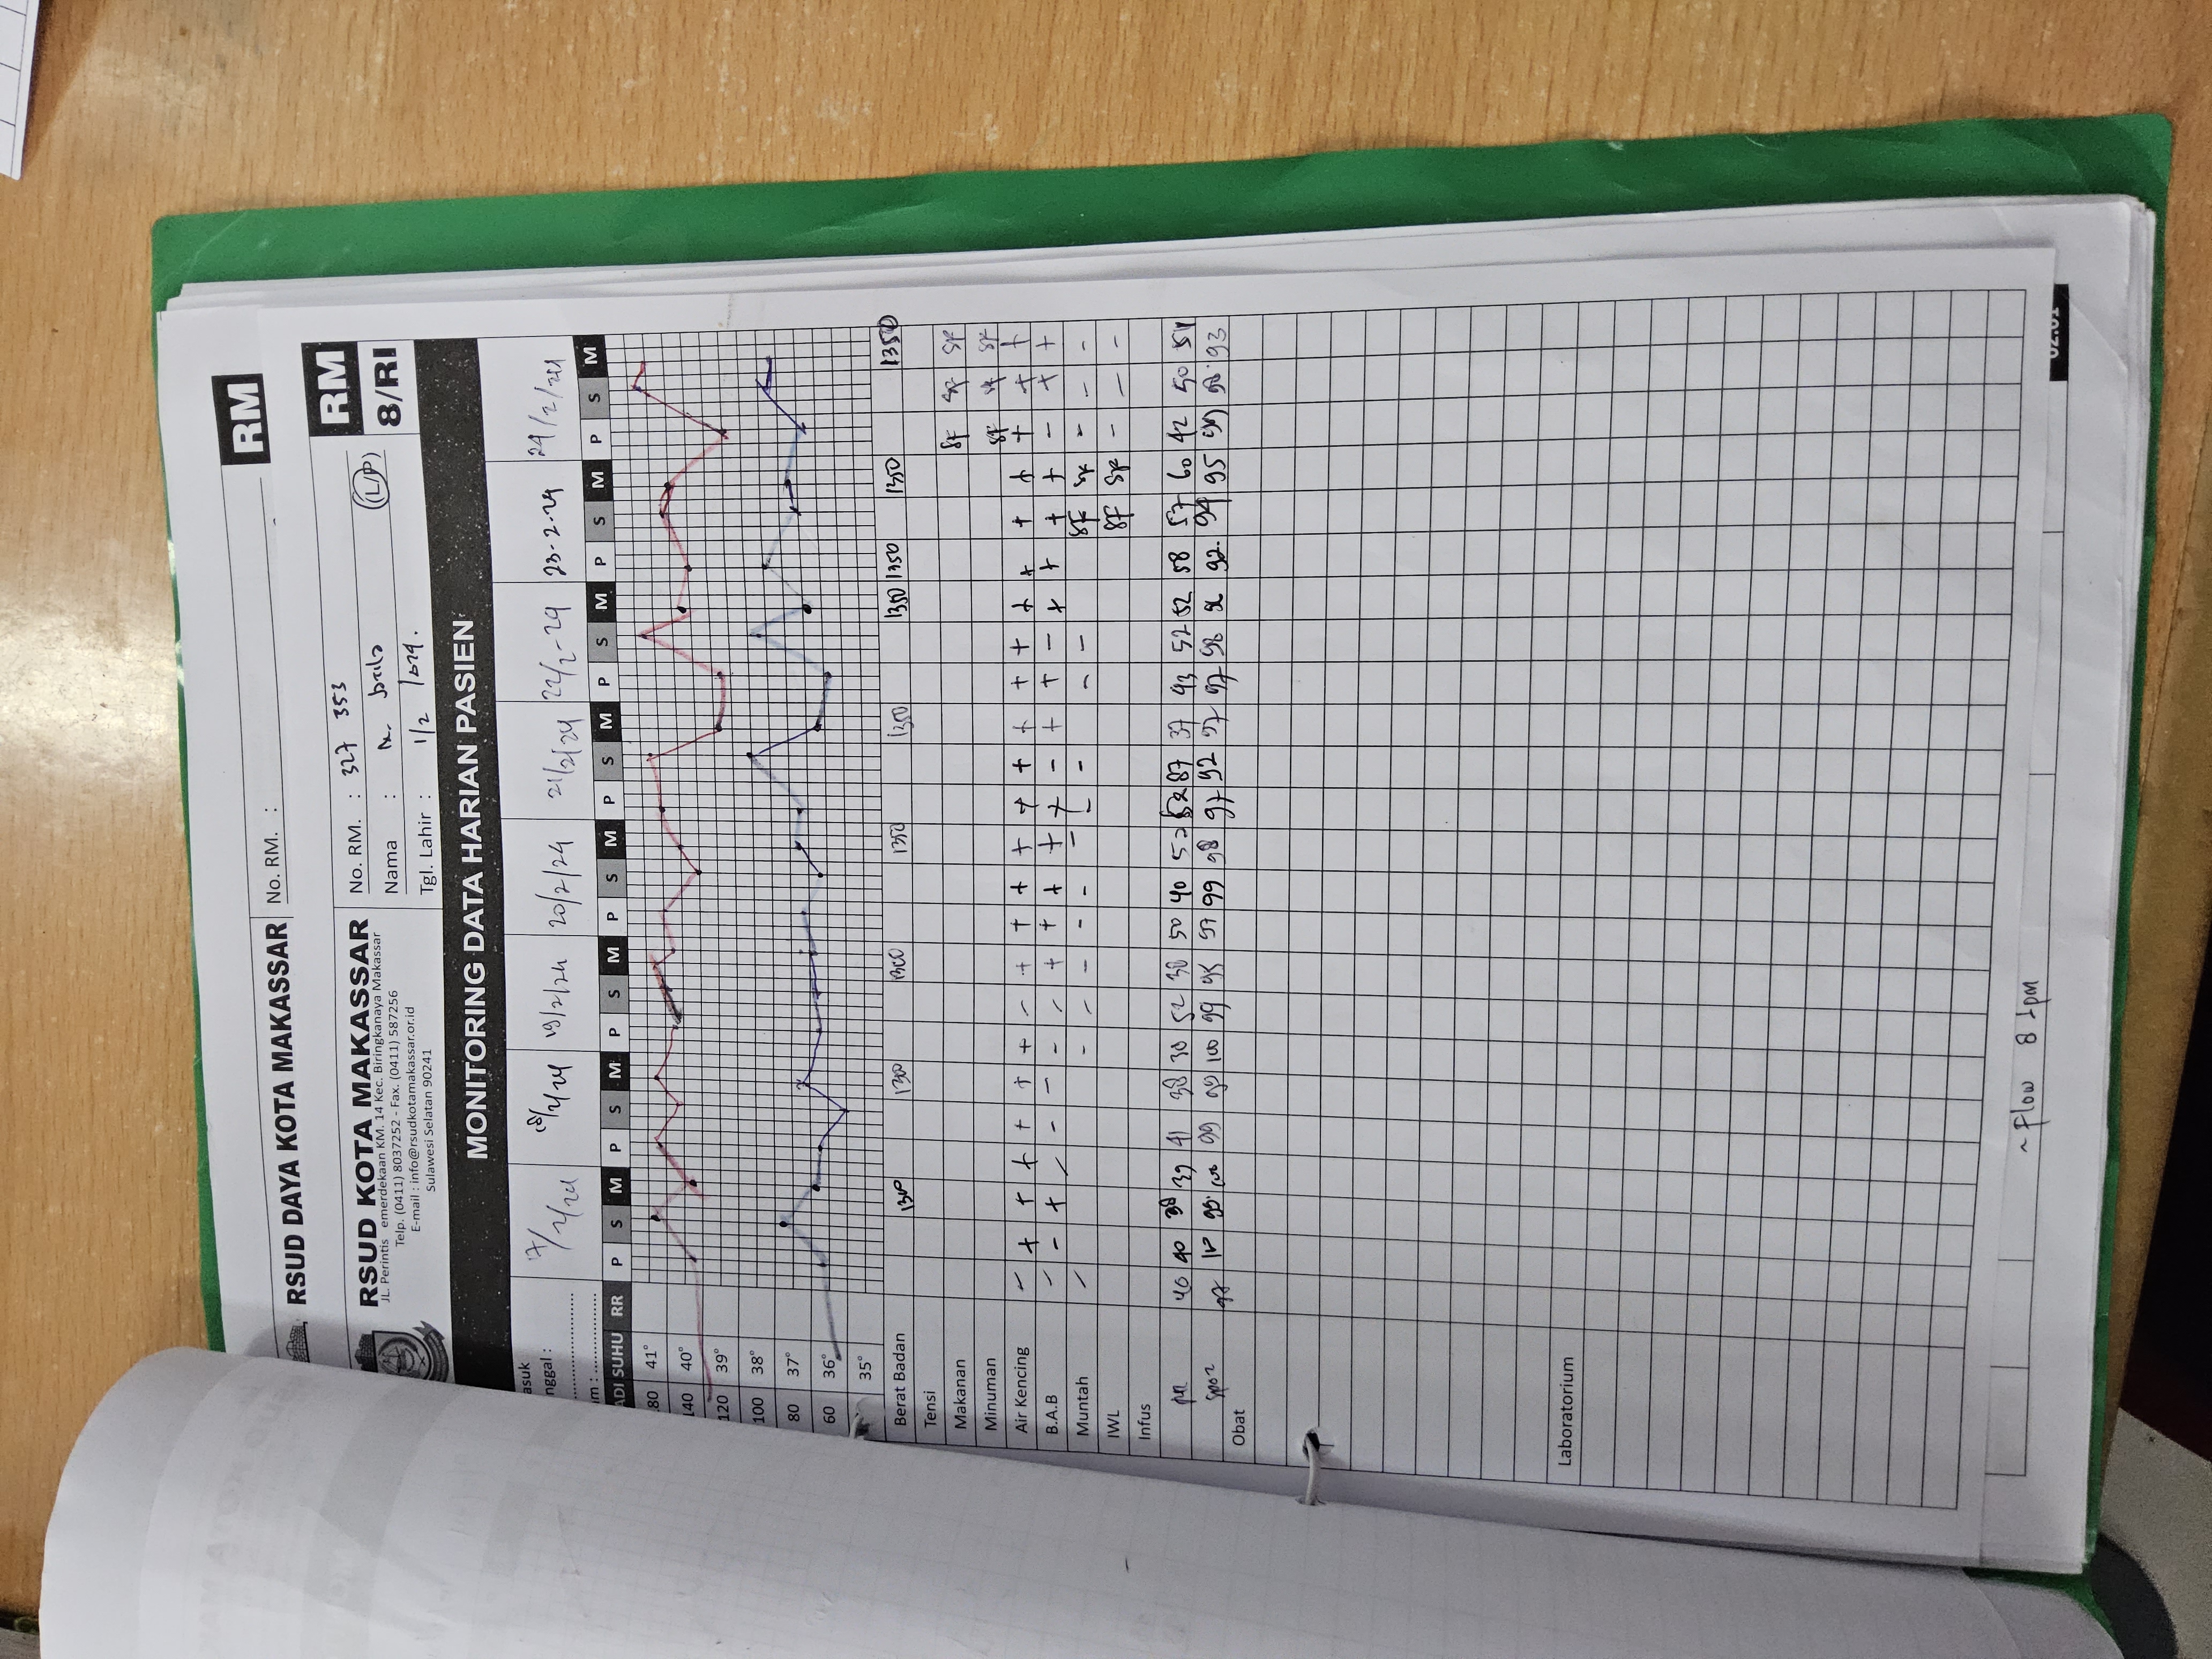 RSUD DAYA KOTA MAKASSAR
No. RM. :
RM
RSUD KOTA MAKASSAR
JL. Perintis emerdekaan KM. 14 Kec. Biringkanaya Makassar
Telp. (0411) 8037252 - Fax. (0411) 587256
E-mail : info@rsudkotamakassar.or.id
Sulawesi Selatan 90241
No. RM. : 327 353
Nama :
(L/P)
Tgl. Lahir : 1/2
RM
8/RI
MONITORING DATA HARIAN PASIEN
asuk
nggal :
17/2/24 18/2/24 19/2/24 20/2/24 21/2/24 22/2-24 23-2-24 24/2/24
m :
ADI SUHU RR P S M P S M P S M P S M P S M P S M P S M P S M
80 41°
140 40°
120 39°
100 38°
80 37°
60 36°
35°
Berat Badan 1300 1300 1300 1350 1350 1350 1350 1350 1350
Tensi
Makanan SF SF SF
Minuman SF SF SF
Air Kencing - + + + + + + - + + + + + + + + + + + + + + + +
B.A.B - - + - - - - - + + + + + - + + - + + + + - + +
Muntah - - - - - - - - - - - SF SF - - -
IWL SF SF - - -
Infus
40 40 38 39 41 38 30 52 38 50 40 52 52 87 37 43 52 52 58 57 60 42 50 51
SpO2 97 100 99 100 99 99 100 99 95 97 99 98 97 92 97 97 98 96 92 94 95 99 98 93
Obat
Laboratorium
~ Flow 8 lpm
02.01